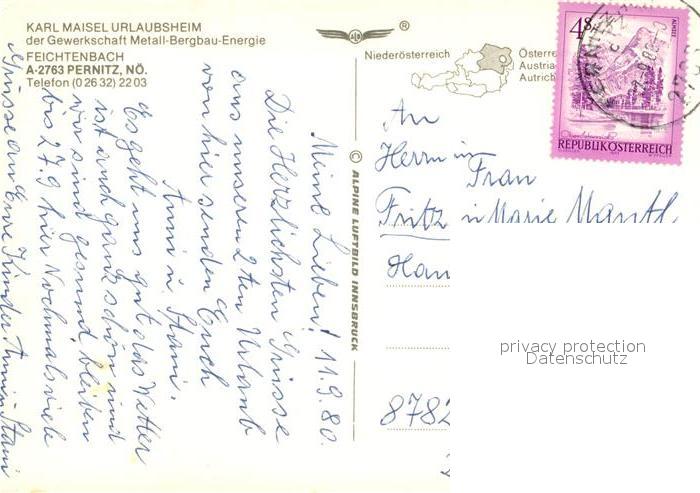 KARL MAISEL URLAUBSHEIM
der Gewerkschaft Metall-Bergbau-Energie
FEICHTENBACH
A-2763 PERNITZ, NÖ.
Telefon (0 26 32) 22 03
®
Niederösterreich
Österre
Austria
Autrich
4S
ALMSEE
REPUBLIK ÖSTERREICH
Meine Lieben! 11.9.80.
Die Herzlichsten Grüsse
aus unseren 2ten Urlaub
von hier senden Euch
Anni u. Stani.
Es geht uns gut das Wetter
ist auch ganz schön und
wir sind gesund bleiben
bis 27.9 hier Nochmals viele
Grüsse an Eure Kinder Anni u Stani
© ALPINE LUFTBILD INNSBRUCK
An
Herrn u
Frau
Fritz u Marie
Hau
8782
privacy protection
Datenschutz